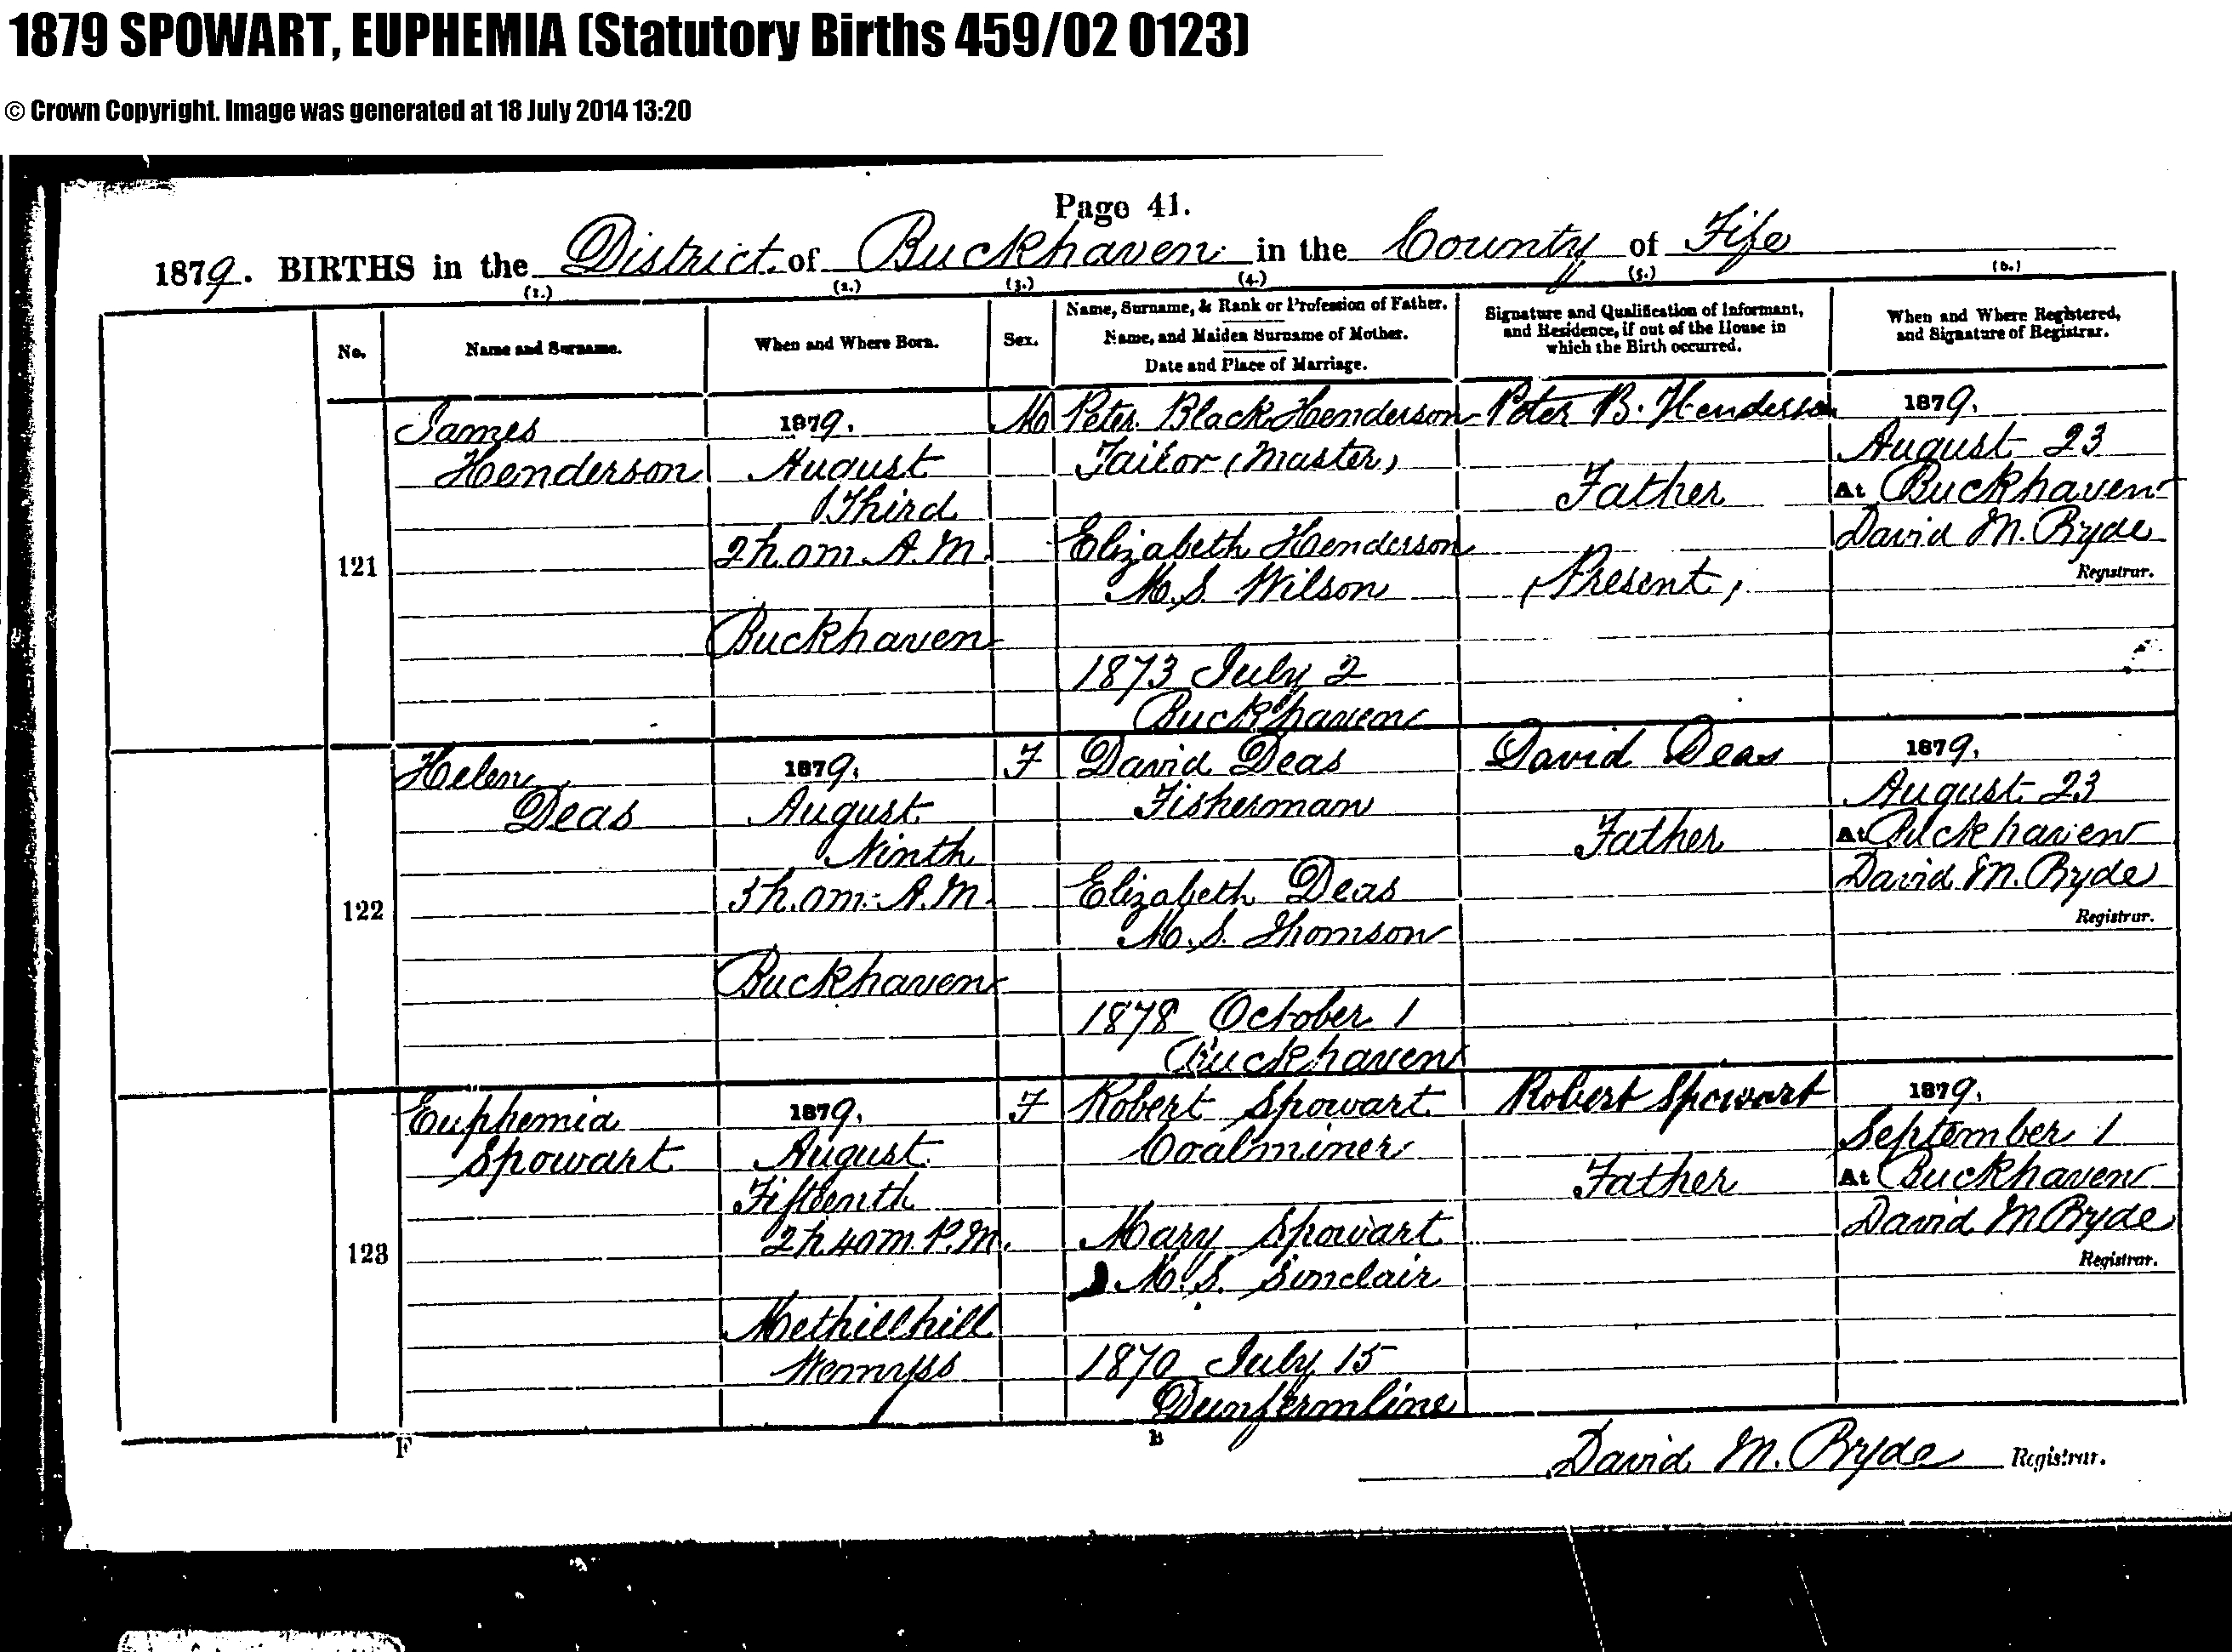 1879 SPOWART, EUPHEMIA (Statutory Births 459/02 0123)
© Crown Copyright. Image was generated at 18 July 2014 13:20
Page 41.
1879. BIRTHS in the District of Buckhaven in the County of Fife
(1.) (2.) (3.) (4.) (5.) (6.)
No.
Name and Surname.
When and Where Born.
Sex.
Name, Surname, & Rank or Profession of Father.
Name, and Maiden Surname of Mother.
Date and Place of Marriage.
Signature and Qualification of Informant,
and Residence, if out of the House in
which the Birth occurred.
When and Where Registered,
and Signature of Registrar.
121
James
Henderson
1879.
August
Third
2h. 0m. A.M.
Buckhaven
M
Peter Black Henderson
Tailor (Master)
Elizabeth Henderson
M.S. Wilson
1873 July 2
Buckhaven
Peter B. Henderson
Father
(Present)
1879.
August 23
At Buckhaven
David M. Bryde
Registrar.
122
Helen
Deas
1879.
August
Ninth
3h. 0m. A.M.
Buckhaven
F
David Deas
Fisherman
Elizabeth Deas
M.S. Thomson
1878 October 1
Buckhaven
David Deas
Father
1879.
August 23
At Buckhaven
David M. Bryde
Registrar.
123
Euphemia
Spowart
1879.
August
Fifteenth
2h. 40m. P.M.
Methillhill
Wemyss
F
Robert Spowart
Coalminer
Mary Spowart
M.S. Sinclair
1870 July 15
Dunfermline
Robert Spowart
Father
1879.
September 1
At Buckhaven
David M Bryde
Registrar.
F
B
David M. Bryde Registrar.